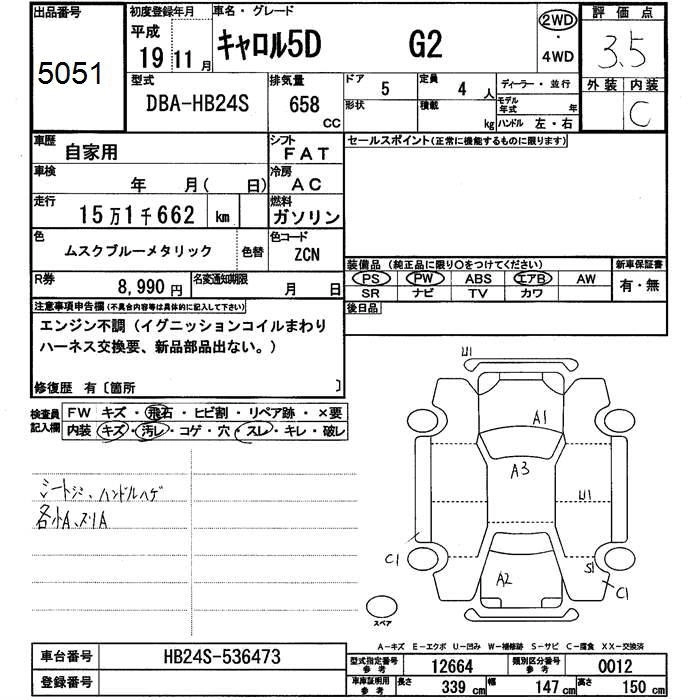 出品番号
5051
初度登録年月
平成
19 11月
車名・グレード
キャロル5D G2
2WD
・
4WD
評価点
3.5
外装 内装
C
型式
DBA-HB24S
排気量
658
CC
ドア 5
定員 4 人
形状
積載 kg
ディーラー・並行
モデル年式 年
ハンドル 左・右
車歴
自家用
シフト
FAT
車検
年 月( 日)
冷房
AC
走行
15万1千662 km
燃料
ガソリン
色
ムスクブルーメタリック
色替
色コード
ZCN
R券
8,990円
名変通知期限
月 日
セールスポイント(正常に機能するものに限ります)
装備品 (純正品に限り○をつけてください)
PS PW ABS エアB AW
SR ナビ TV カワ
新車保証書
有・無
後日品
注意事項申告欄(不具合内容等は具体的に記入して下さい)
エンジン不調(イグニッションコイルまわり
ハーネス交換要、新品部品出ない。)
修復歴 有〔箇所 〕
検査員
記入欄
FW キズ・飛石・ヒビ割・リペア跡・×要
内装 キズ・汚レ・コゲ・穴・スレ・キレ・破レ
シートシミ、ハンドルハゲ
各小A、スリA
U1
A1
A3
U1
C1
S1
C1
A2
スペア
A-キズ E-エクボ U-凹み W-補修跡 S-サビ C-腐食 XX-交換済
車台番号
HB24S-536473
登録番号
型式指定番号
参考
12664
類別区分番号
参考
0012
車庫証明用
参考
長さ 339 cm
幅 147 cm
高さ 150 cm